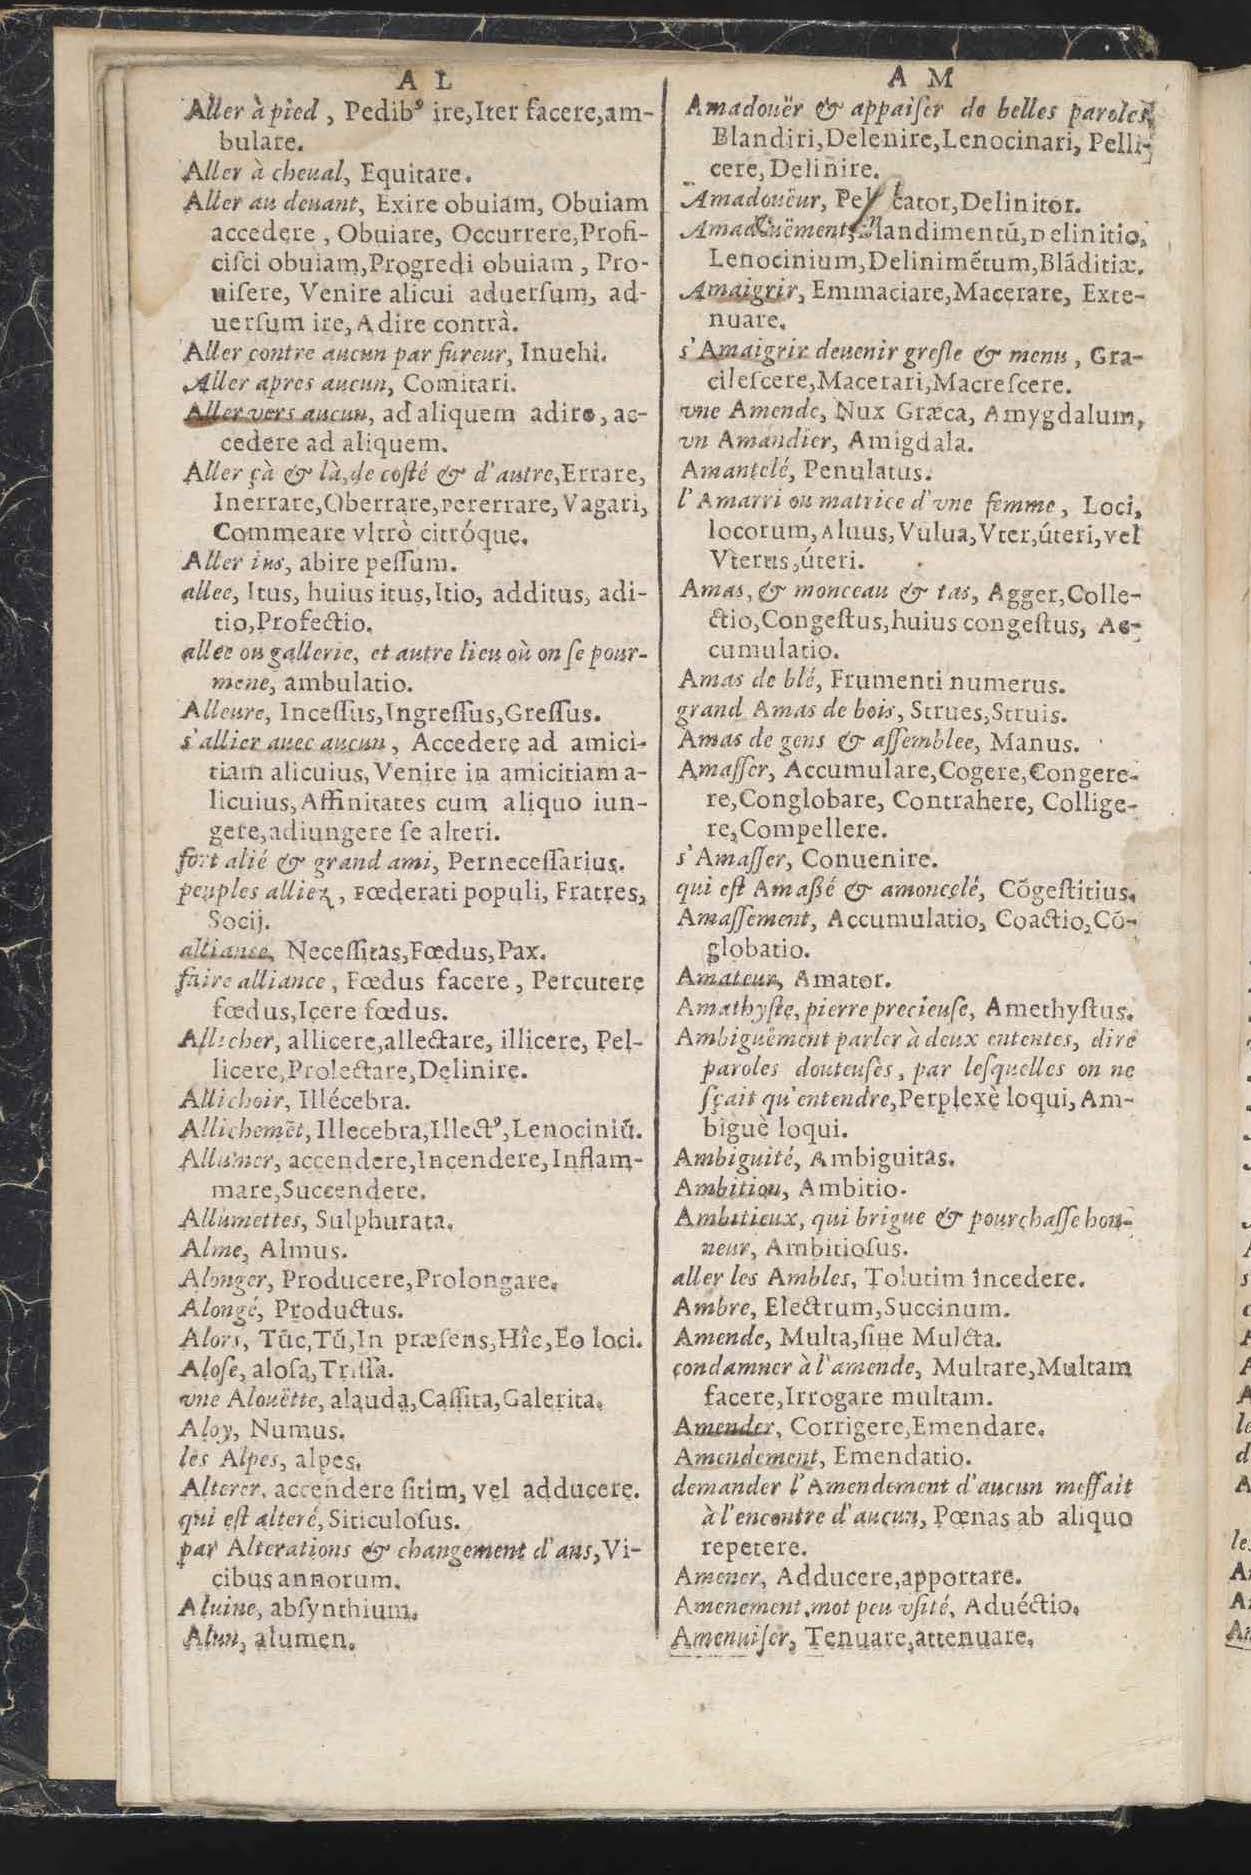 A L
Aller à pied, Pedibꝰ ire, Iter facere, am-
bulare.
Aller à cheual, Equitare.
Aller au deuant, Exire obuiam, Obuiam
accedere, Obuiare, Occurrere, Profi-
ciſci obuiam, Progredi obuiam, Pro-
uiſere, Venire alicui aduerſum, ad-
uerſum ire, Adire contrà.
Aller contre aucun par fureur, Inuehi.
Aller apres aucun, Comitari.
Aller vers aucun, ad aliquem adire, ac-
cedere ad aliquem.
Aller çà & là, de coſté & d'autre, Errare,
Inerrare, Oberrare, pererrare, Vagari,
Commeare vltrò citróque.
Aller ius, abire peſſum.
allee, Itus, huius itus, Itio, additus, adi-
tio, Profectio.
allée ou gallerie, et autre lieu où on ſe pour-
mene, ambulatio.
Alleure, Inceſſus, Ingreſſus, Greſſus.
s'allier auec aucun, Accedere ad amici-
tiam alicuius, Venire in amicitiam a-
licuius, Affinitates cum aliquo iun-
gere, adiungere ſe alteri.
fort alié & grand ami, Perneceſſarius.
peuples alliez, Fœderati populi, Fratres,
Socij.
alliance, Neceſſitas, Fœdus, Pax.
faire alliance, Fœdus facere, Percutere
fœdus, Icere fœdus.
Allicher, allicere, allectare, illicere, Pel-
licere, Prolectare, Delinire.
Allichoir, Illécebra.
Allichemēt, Illecebra, Illectꝰ, Lenociniū.
Allumer, accendere, Incendere, Inflam-
mare, Succendere.
Allumettes, Sulphurata.
Alme, Almus.
Alonger, Producere, Prolongare.
Alongé, Productus.
Alors, Tūc, Tū, In præſens, Hîc, Eo loci.
Aloſe, aloſa, Triſſa.
vne Alouëtte, alauda, Caſſita, Galerita.
Aloy, Numus.
les Alpes, alpes.
Alterer, accendere ſitim, vel adducere.
qui eſt alteré, Siticuloſus.
par Alterations & changement d'ans, Vi-
cibus annorum.
Aluine, abſynthium.
Alun, alumen.
A M
Amadouër & appaiſer de belles paroles,
Blandiri, Delenire, Lenocinari, Pelli-
cere, Delinire.
Amadouëur, cator, Delinitor.
Amadouëment, Blandimentū, Delinitio,
Lenocinium, Delinimētum, Blāditiæ.
Amaigrir, Emmaciare, Macerare, Exte-
nuare.
s'Amaigrir deuenir greſle & menu, Gra-
cileſcere, Macerari, Macreſcere.
vne Amende, Nux Græca, Amygdalum,
vn Amandier, Amigdala.
Amantelé, Penulatus.
l'Amarri ou matrice d'vne femme, Loci,
locorum, Aluus, Vulua, Vter, úteri, vel
Vterus, úteri.
Amas, & monceau & tas, Agger, Colle-
ctio, Congeſtus, huius congeſtus, Ac-
cumulatio.
Amas de blé, Frumenti numerus.
grand Amas de bois, Strues, Struis.
Amas de gens & aſſemblee, Manus.
Amaſſer, Accumulare, Cogere, Congere-
re, Conglobare, Contrahere, Collige-
re, Compellere.
s'Amaſſer, Conuenire.
qui eſt Amaßé & amoncelé, Cōgeſtitius.
Amaſſement, Accumulatio, Coactio, Cō-
globatio.
Amateur, Amator.
Amathyſte, pierre precieuſe, Amethyſtus.
Ambiguëment parler à deux ententes, dire
paroles douteuſes, par leſquelles on ne
ſçait qu'entendre, Perplexè loqui, Am-
biguè loqui.
Ambiguité, Ambiguitas.
Ambition, Ambitio.
Ambitieux, qui brigue & pourchaſſe hon-
neur, Ambitioſus.
aller les Ambles, Tolutim incedere.
Ambre, Electrum, Succinum.
Amende, Multa, ſiue Mulcta.
condamner à l'amende, Multare, Multam
facere, Irrogare multam.
Amender, Corrigere, Emendare.
Amendement, Emendatio.
demander l'Amendement d'aucun meſfait
à l'encontre d'aucun, Pœnas ab aliquo
repetere.
Amener, Adducere, apportare.
Amenement, mot peu vſité, Aduéctio.
Amenuiſer, Tenuare, attenuare.